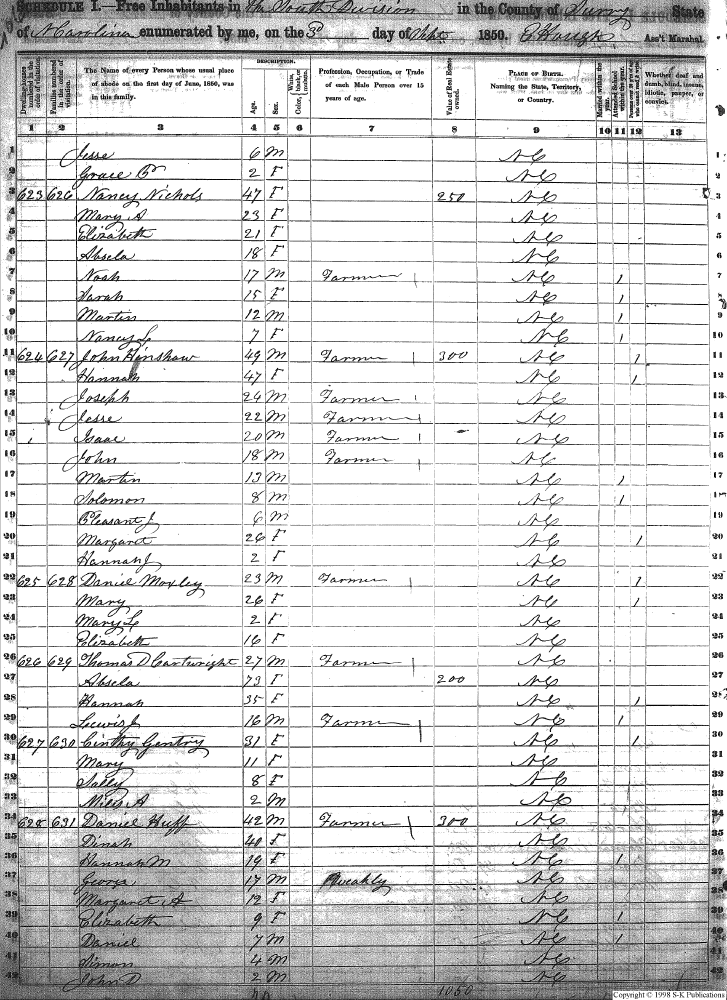 SCHEDULE I.—Free Inhabitants in the South Division in the County of Surry State
of N Carolina enumerated by me, on the 3 day of Sept 1850. Ass't Marshal.
Dwelling-houses numbered in the order of visitation.
Families numbered in the order of visitation.
The Name of every Person whose usual place of abode on the first day of June, 1850, was in this family.
DESCRIPTION.
Age.
Sex.
White, black, or mulatto.
Color,
Profession, Occupation, or Trade of each Male Person over 15 years of age.
Value of Real Estate owned.
PLACE OF BIRTH. Naming the State, Territory, or Country.
Married within the year.
Attended School within the year.
Whether deaf and dumb, blind, insane, idiotic, pauper, or convict.
1 2 3 4 5 6 7 8 9 10 11 12 13
1 Jesse 6 M NC 1
2 Grace 2 F NC 2
3 623 626 Nancy Nichols 47 F 250 NC 3
4 Mary A 23 F NC 4
5 Elizabeth 21 F NC 5
6 Absela 18 F NC 6
7 Noah 17 M Farmer NC / 7
8 Sarah 15 F NC / 8
9 Martin 12 M NC / 9
10 Nancy L 7 F NC / 10
11 624 627 John Hinshaw 49 M Farmer 300 NC / 11
12 Hannah 47 F NC / 12
13 Joseph 24 M Farmer NC 13
14 Jesse 22 M Farmer NC 14
15 Isaac 20 M Farmer NC 15
16 John 18 M Farmer NC 16
17 Martin 13 M NC / 17
18 Solomon 8 M NC / 18
19 Pleasant J 6 M NC 19
20 Margaret 26 F NC / 20
21 Hannah J 2 F NC 21
22 625 628 Daniel Moxley 23 M Farmer NC / 22
23 Mary 26 F NC / 23
24 Mary L 2 F NC 24
25 Elizabeth 16 F NC 25
26 626 629 Thomas D Cartwright 27 M Farmer NC 26
27 Absela 73 F 200 NC 27
28 Hannah 35 F NC / 28
29 Lewis J 16 M Farmer NC / 29
30 627 630 Cinthy Gentry 31 F NC / 30
31 Mary 11 F NC 31
32 Salley 8 F NC 32
33 Miles A 2 M NC 33
34 628 631 Daniel Huff 42 M Farmer 300 NC 34
35 Dinah 40 F NC 35
36 Hannah M 19 F NC / 36
37 George 17 M Weakly NC 37
38 Margaret A 12 F NC 38
39 Elizabeth 9 F NC / 39
40 Daniel 7 M NC / 40
41 Simon 4 M NC 41
42 John D 2 M NC 42
1050
Copyright © 1998 S-K Publications